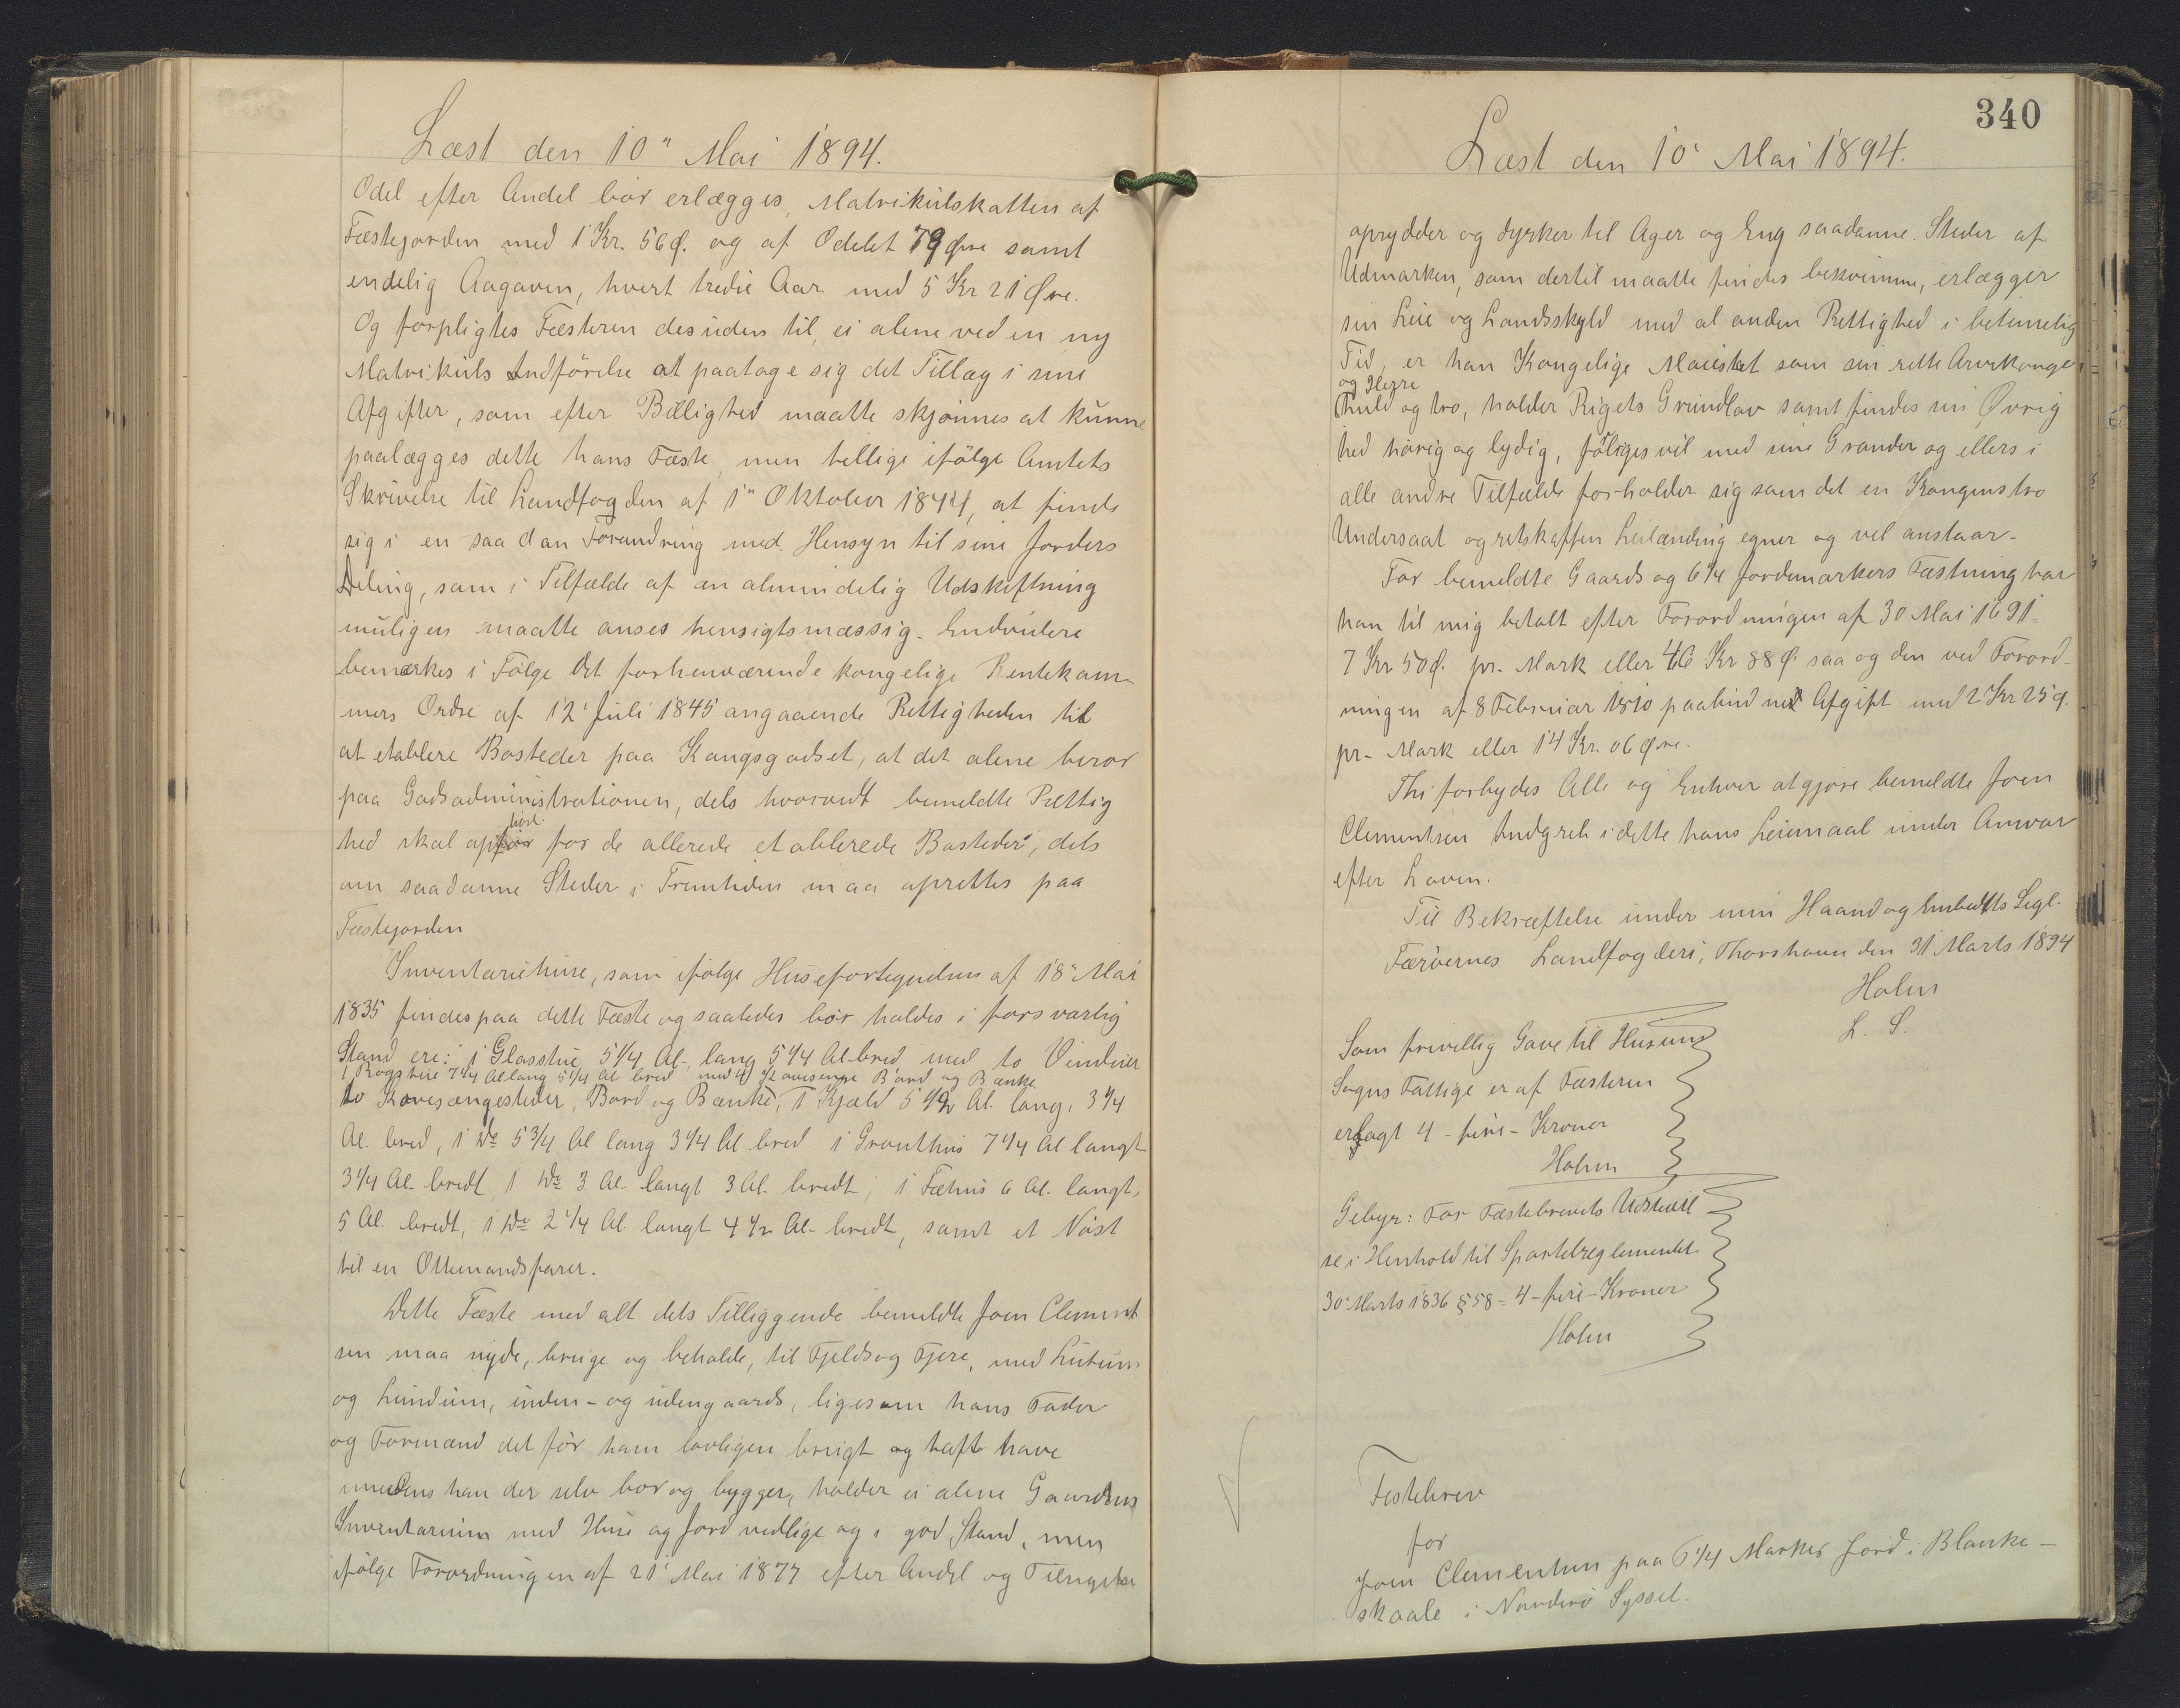 Læst den 10" Mai 1894.
Odel efter Andel bør erlægges, Matrikulskatten af
Fæstejorden med 1 Kr. 56 Ø. og af Odelet 79 Øre samt
endelig Aagaven, hvert tredie Aar med 5 Kr 21 Øre.
Og forpligtes Fæsteren desuden til, ei alene ved en ny
Matrikuls Indførelse at paatage sig det Tillæg i sine
Afgifter, som efter Billighed maatte skjønnes at kunne
paalægges dette hans Fæste, men tillige ifølge Amtets
Skrivelse til Landfogden af 1" Oktober 1844, at finde
sig i en saadan Forandring med Hensyn til sine Jorders
Deling, som i Tilfælde af en almindelig Udskiftning
muligen maatte anses hensigtsmæssig. Endvidere
bemærkes i Følge Det forhenværende kongelige Rentekam-
mers Ordre af 12' Juli 1845 angaaende Rettigheden til
at etablere Bosteder paa Kongsgodset, at det alene beror
paa Godsadministrationen, dels hvorvidt bemeldte Rettig
hed skal ophøre for de allerede etablerede Bosteder, dels
om saadanne Steder i Fremtiden maa oprettes paa
Fæstejorden
Inventariehuse, som ifølge Husefortegnelsen af 18" Mai
1835 findes paa dette Fæste og saaledes bør holdes i forsvarlig
Stand ere: 1 Glasstue 5 1/4 Al. lang 5 1/4 Al. bred med to Vinduer
1 Rogstue 7 1/4 Al lang 5 1/4 Al bred med 4 Bord og Bænke
to Kovesængesteder, Bord og Bænke, 1 Kjæld 5 1/2 Al. lang, 3 1/4
Al. bred, 1 Do 5 3/4 Al lang 3 1/4 Al bred 1 Grouthus 7 1/4 Al langt
3 1/4 Al. bredt 1 Do 3 Al. langt 3 Al. bredt, 1 Fæhus 6 Al. langt,
5 Al. bredt, 1 Do 2 1/4 Al langt 4 1/2 Al. bredt, samt et Nøst
til en Ottemandsfarer.
Dette Fæste med alt dets Tilliggende bemeldte Joen Clement
sen maa nyde, bruge og beholde, til Fjelds og Fjere, med Lutum
og Lundum, inden- og udengaards, ligesom hans Fader
og Formænd det før ham lovligen brugt og haft have
imedens han der selv bor og bygger, holder ei alene Gaardens
Inventarium med Huse og Jord vedlige og i god Stand, men
ifølge Forordningen af 21' Mai 1877 efter Andel og
340
Læst den 10' Mai 1894.
oprydder og dyrker til Ager og Eng saadanne Steder af
Udmarken, som dertil maatte findes bekvemme, erlægger
sin Leie og Landsskyld med al anden Rettighed i betimelig
Tid, er han Kongelige Maiestæt som sin rette Arvekonge
og Herre
huld og tro, holder Rigets Grundlov samt findes sin Øvrig
hed hørig og lydig, føliges vil med sine Grander og ellers i
alle andre Tilfælde forholder sig som det en Kongens tro
Undersaat og retskaffen Leilænding egner og vel anstaar.
For bemeldte Gaards og 6 1/4 Jordemarkers Fæstning har
han til mig betalt efter Forordningen af 30 Mai 1691
7 Kr 50 Ø. pr. Mark eller 46 Kr 88 Ø. saa og den ved Forord-
ningen af 8 Februar 1810 paabudne Afgift med 2 Kr 25 Ø.
pr. Mark eller 14 Kr. 06 Øre.
Thi forbydes Alle og Enhver at gjøre bemeldte Joen
Clementsen Indgreb i dette hans Leiemaal under Ansvar
efter Loven.
Til Bekræftelse under min Haand og Embedets Segl.
Færøernes Landfogderi, Thorshavn den 31 Marts 1894
Holm
L. S.
Som frivillig Gave til Husum
Sogns Fattige er af Fæsteren
erlagt 4 - fire - Kroner
Holm
Gebyr: For Fæstebrevets Udstedel
se i Henhold til Sportelreglementet
30' Marts 1836 § 58 = 4 - fire - Kroner
Holm
Festebrev
for
Joen Clementsen paa 6 1/4 Marker Jord i Blanke-
skaale i Norderø Syssel.